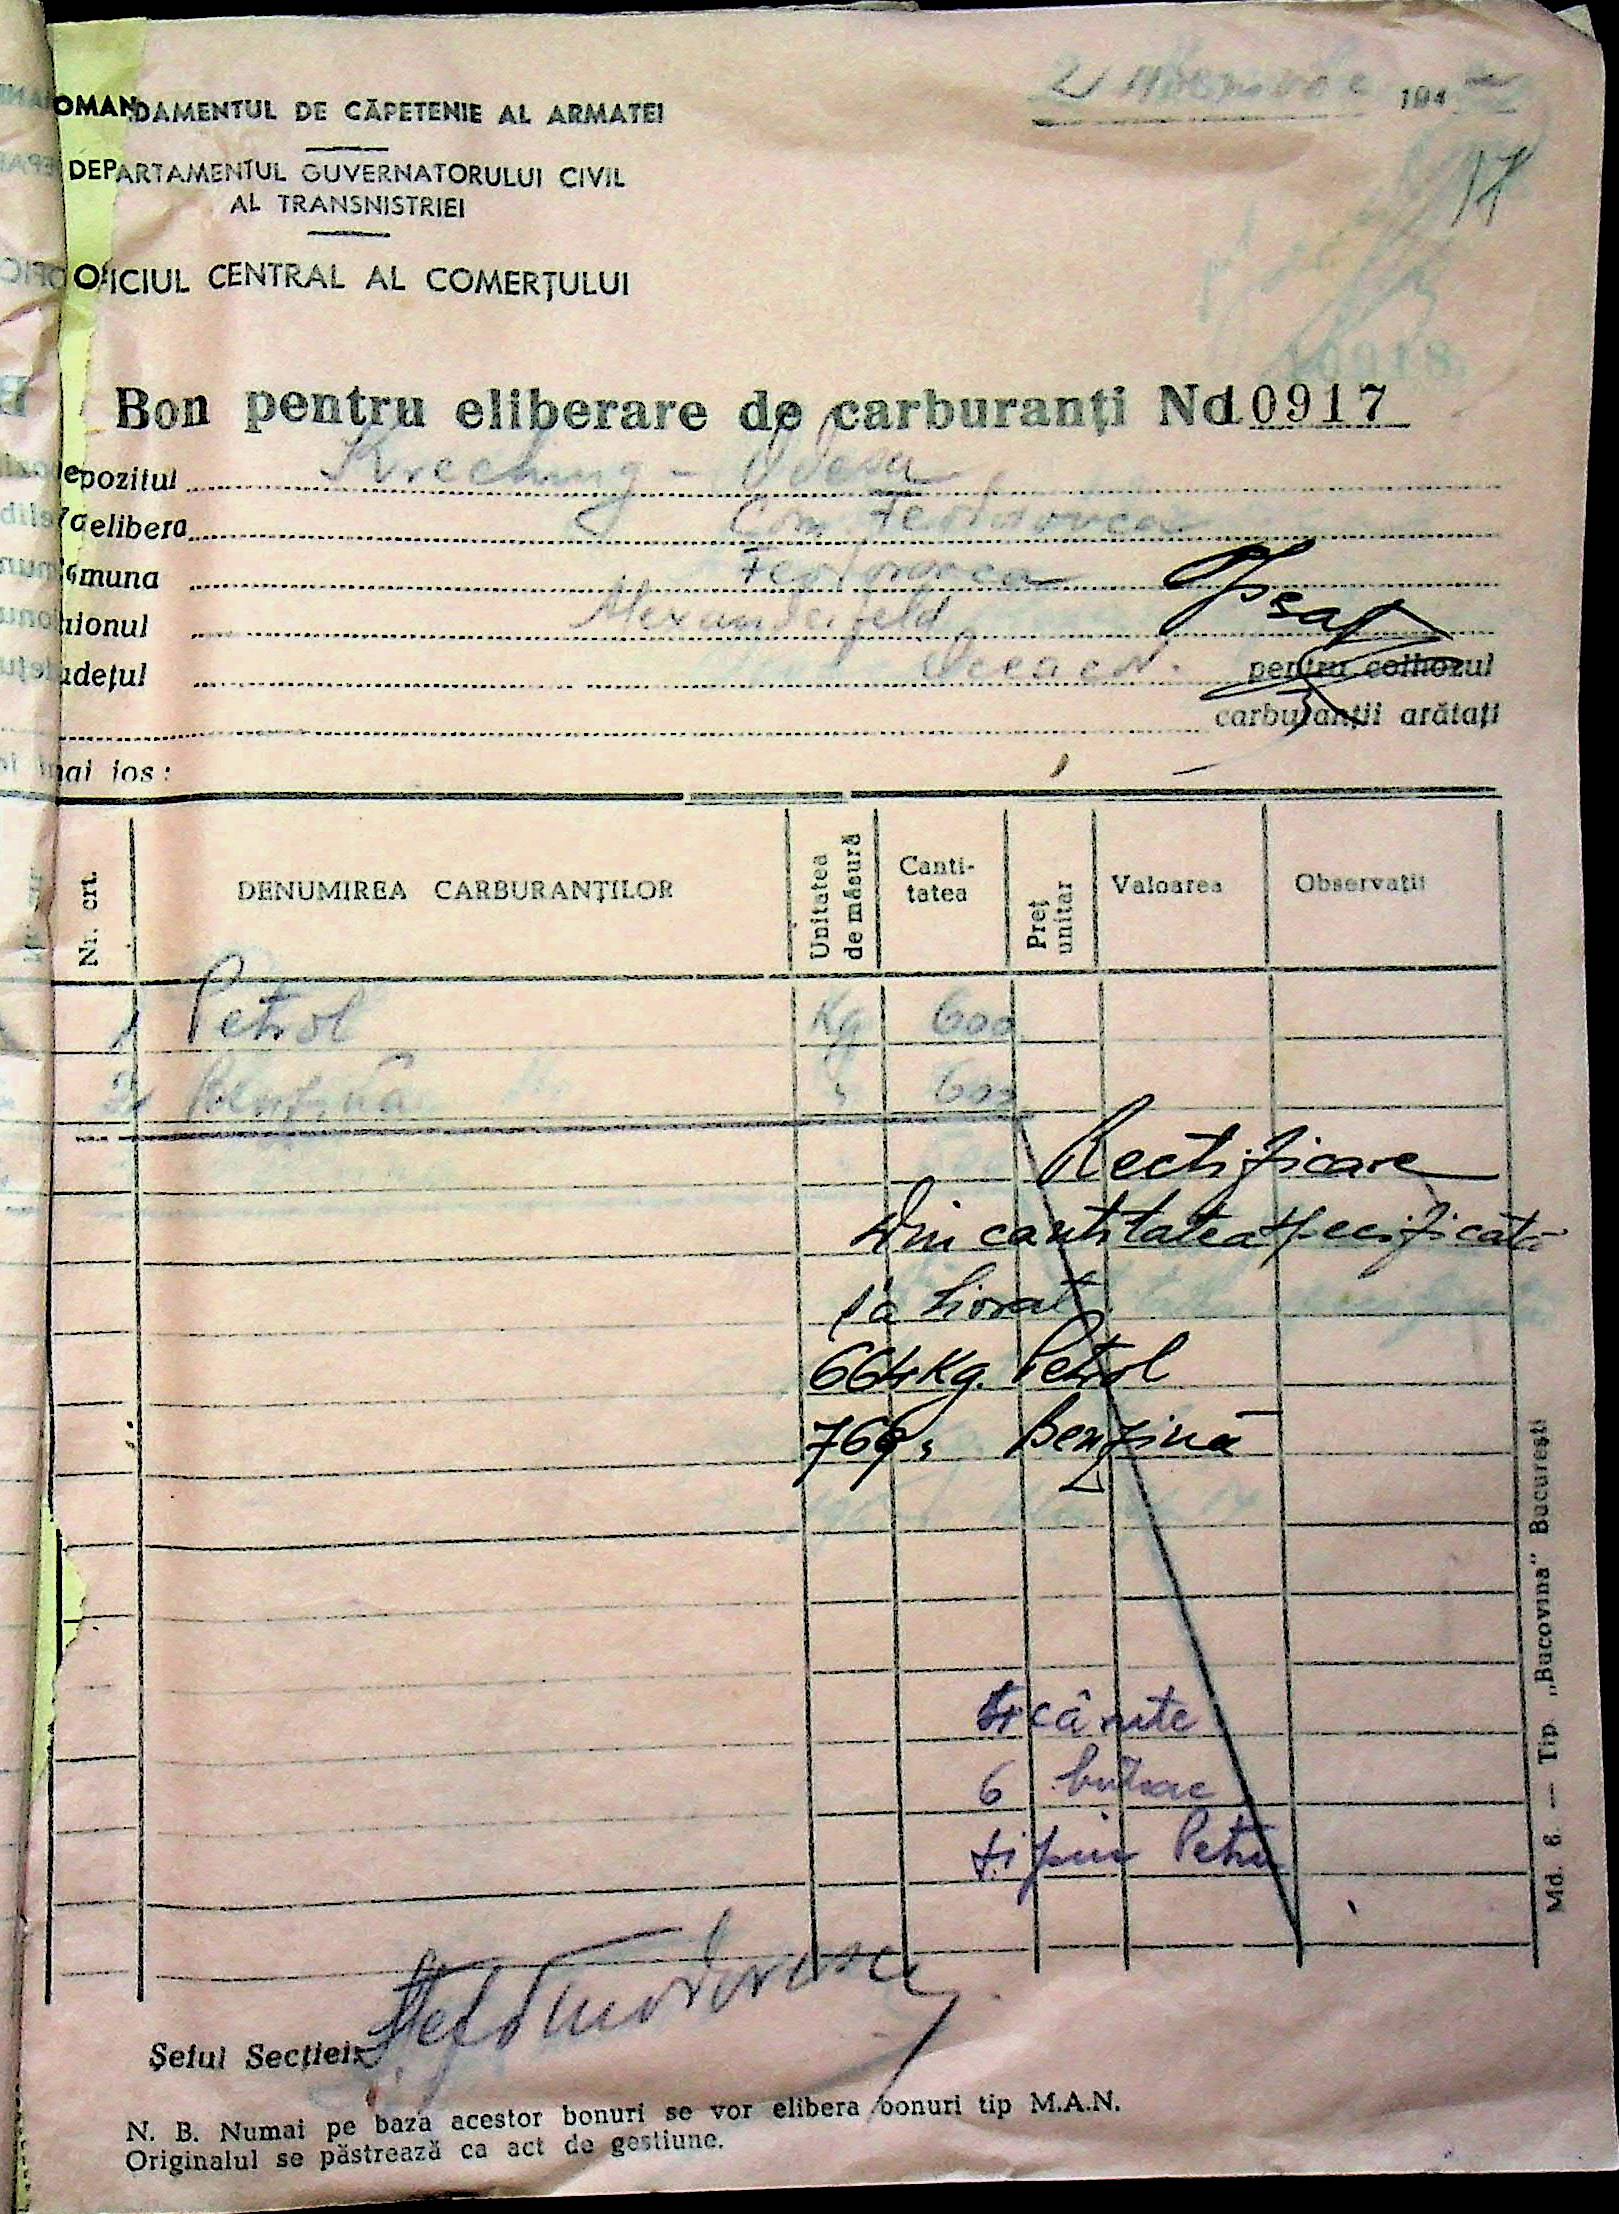 OMANDAMENTUL DE CĂPETENIE AL ARMATEI
194
DEPARTAMENTUL GUVERNATORULUI CIVIL
AL TRANSNISTRIEI
17
OFICIUL CENTRAL AL COMERȚULUI
10918
Bon pentru eliberare de carburanți No 10917
epozitul Kreching - Odesa
a elibera Com Feodorovca
omuna Feodorovca
aionul Alexanderfeld
udețul pentru colhozul
carburanții arătați
mai jos:
Nr. crt. DENUMIREA CARBURANȚILOR Unitatea de măsură Canti-tatea Preț unitar Valoarea Observații
1 Petrol Kg 600
2 Benzină " 600
Rectificare
Din cantitatea specificată
s'a livrat
664 Kg. Petrol
769 " Benzină
6 butoae
Petru
Șeful Secției
N. B. Numai pe baza acestor bonuri se vor elibera bonuri tip M.A.N.
Originalul se păstrează ca act de gestiune.
Md. 6. — Tip „Bucovina" București